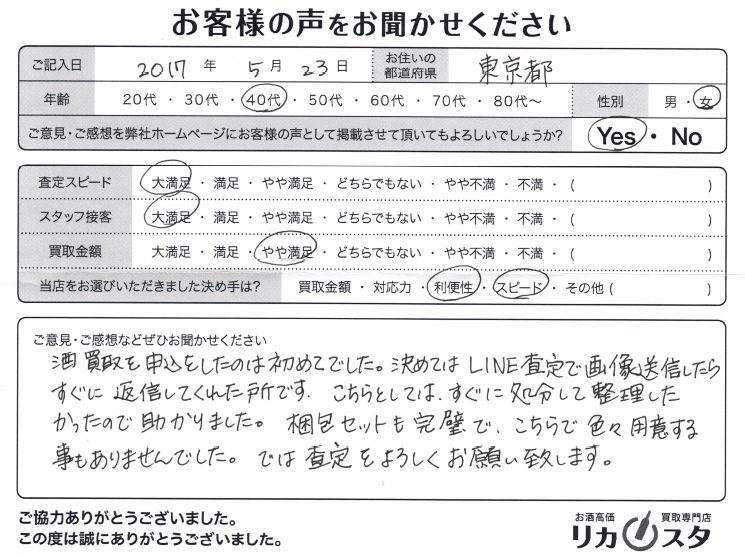 お客様の声をお聞かせください
ご記入日 2017 年 5 月 23 日 お住いの都道府県 東京都
年齢 20代 ・ 30代 ・ 40代 ・ 50代 ・ 60代 ・ 70代 ・ 80代〜 性別 男 ・ 女
ご意見・ご感想を弊社ホームページにお客様の声として掲載させて頂いてもよろしいでしょうか? Yes ・ No
査定スピード 大満足 ・ 満足 ・ やや満足 ・ どちらでもない ・ やや不満 ・ 不満 ・ ( )
スタッフ接客 大満足 ・ 満足 ・ やや満足 ・ どちらでもない ・ やや不満 ・ 不満 ・ ( )
買取金額 大満足 ・ 満足 ・ やや満足 ・ どちらでもない ・ やや不満 ・ 不満 ・ ( )
当店をお選びいただきました決め手は? 買取金額 ・ 対応力 ・ 利便性 ・ スピード ・ その他 ( )
ご意見・ご感想などぜひお聞かせください
酒買取を申込をしたのは初めてでした。決めてはLINE査定で画像送信したら
すぐに返信してくれた所です。こちらとしては、すぐに処分して整理した
かったので助かりました。梱包セットも完璧で、こちらで色々用意する
事もありませんでした。では査定をよろしくお願い致します。
ご協力ありがとうございました。
この度は誠にありがとうございました。
お酒高価 買取専門店
リカスタ